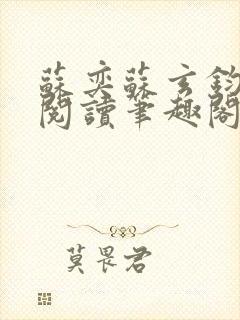 蘇奕蘇玄鈞
閱讀筆趣閣
莫畏君